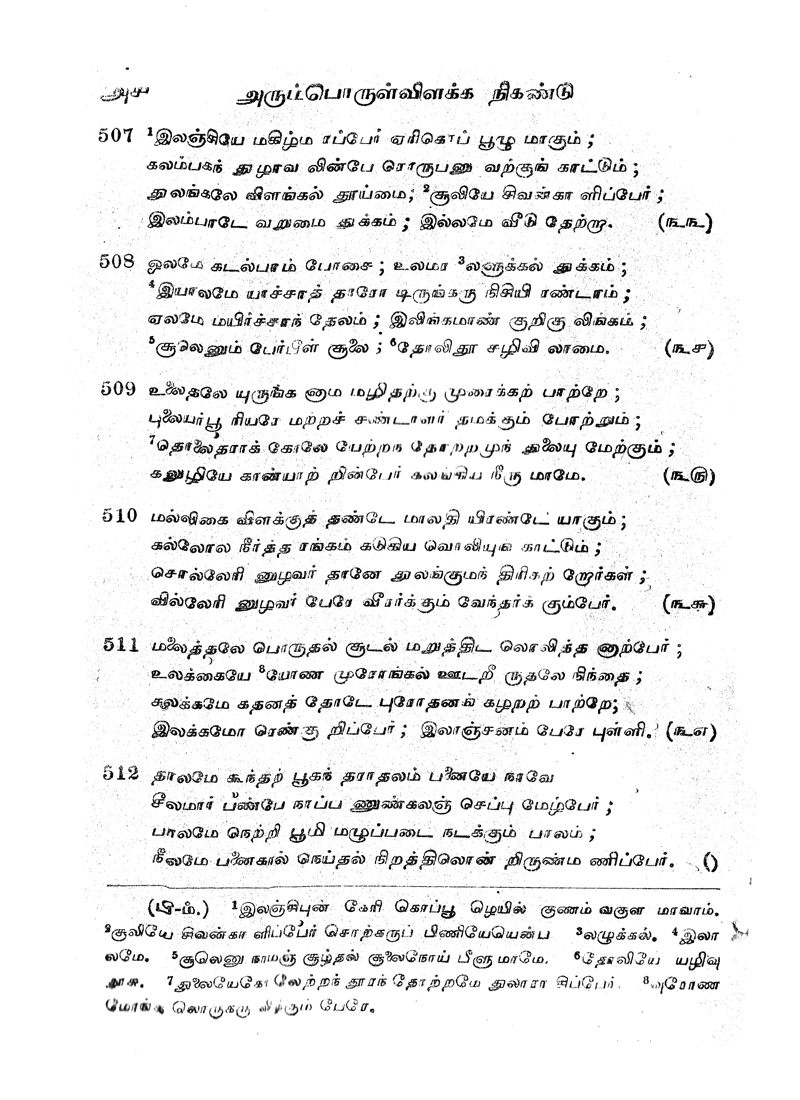 அசு அரும்பொருள்விளக்க நிகண்டு
507 ¹இலஞ்சியே மகிழ்ம ரப்பேர் ஏரிகொப் பூழு மாகும் ;
கலம்பகந் துழாவ லின்பே ரொருபனு வற்குங் காட்டும் ;
துலங்கலே விளங்கல் தூய்மை; ²சூலியே சிவன்கா ளிப்பேர் ;
இலம்பாடே வறுமை துக்கம் ; இல்லமே வீடு தேற்றா. (௩௩)
508 ஓலமே கடல்பாம் போசை ; உலமர ³லளுக்கல் துக்கம் ;
⁴இயாலமே யாச்சாத் தாரோ டிருங்கரு நிகியி ரண்டாம் ;
ஏலமே மயிர்ச்சாந் தேலம் ; இலிங்கமாண் குறிகு லிங்கம் ;
⁵சூலெனும் பேர்பீள் சூலை ; ⁶தோலிதூ சழிவி லாமை. (௩௪)
509 உலைதலே யுருங்க னாம மழிதற்கு முரைக்கற் பாற்றே ;
புலையர்பூ ரியரே மற்றச் சண்டாளர் தமக்கும் போற்றும் ;
⁷தொலைதராக் கோலே யேற்றந் தோற்றமுந் துலையு மேற்கும் ;
கலுழியே கான்யாற் றின்பேர் கலங்கிய நீரு மாமே. (௩௫)
510 மல்லிகை விளக்குத் தண்டே மாலதி யிரண்டே யாகும் ;
கல்லோல நீர்த்த ரங்கம் கடுகிய வொலியுங் காட்டும் ;
சொல்லேரி னுழவர் தானே துலங்குமந் திரிகற் றோர்கள் ;
வில்லேரி னுழவர் பேரே வீரர்க்கும் வேந்தர்க் கும்பேர். (௩௬)
511 மலைத்தலே பொருதல் சூடல் மறுத்திட லொலித்த னாற்பேர் ;
உலக்கையே ⁸யோண முரோங்கல் ஊடறீ ருதலே நிந்தை ;
சுலக்கமே கதனத் தோடே புரோதனங் கழறற் பாற்றே;
இலக்கமோ ரெண்கு றிப்பேர் ; இலாஞ்சனம் பேரே புள்ளி. (௩௭)
512 தாலமே கூந்தற் பூகந் தராதலம் பனையே நாவே
சீலமார் பண்பே நாப்ப ணுண்கலஞ் செப்பு மேழ்பேர் ;
பாலமே நெற்றி பூமி மழுப்படை நடக்கும் பாலம் ;
நீலமே பனைகால் நெய்தல் நிறத்திலொன் றிருண்ம ணிப்பேர். ()
(பி-ம்.) ¹இலஞ்சிபுன் கேரி கொப்பூ ழெயில் குணம் வகுள மாவாம்.
²சூலியே சிவன்கா ளிப்பேர் சொற்கருப் பிணியேயென்ப ³லழுக்கல். ⁴இலா
லமே. ⁵சூலெனு நாமஞ் சூழ்தல் சூலைநோய் பீளு மாமே. ⁶தோலியே யழிவு
தூசு. ⁷துலையேகோ லேற்றந் தூரந் தோற்றமே துலாரா சிப்பேர். ⁸வுரோண
மோங்க லொருகரு விக்கும் பேரே.